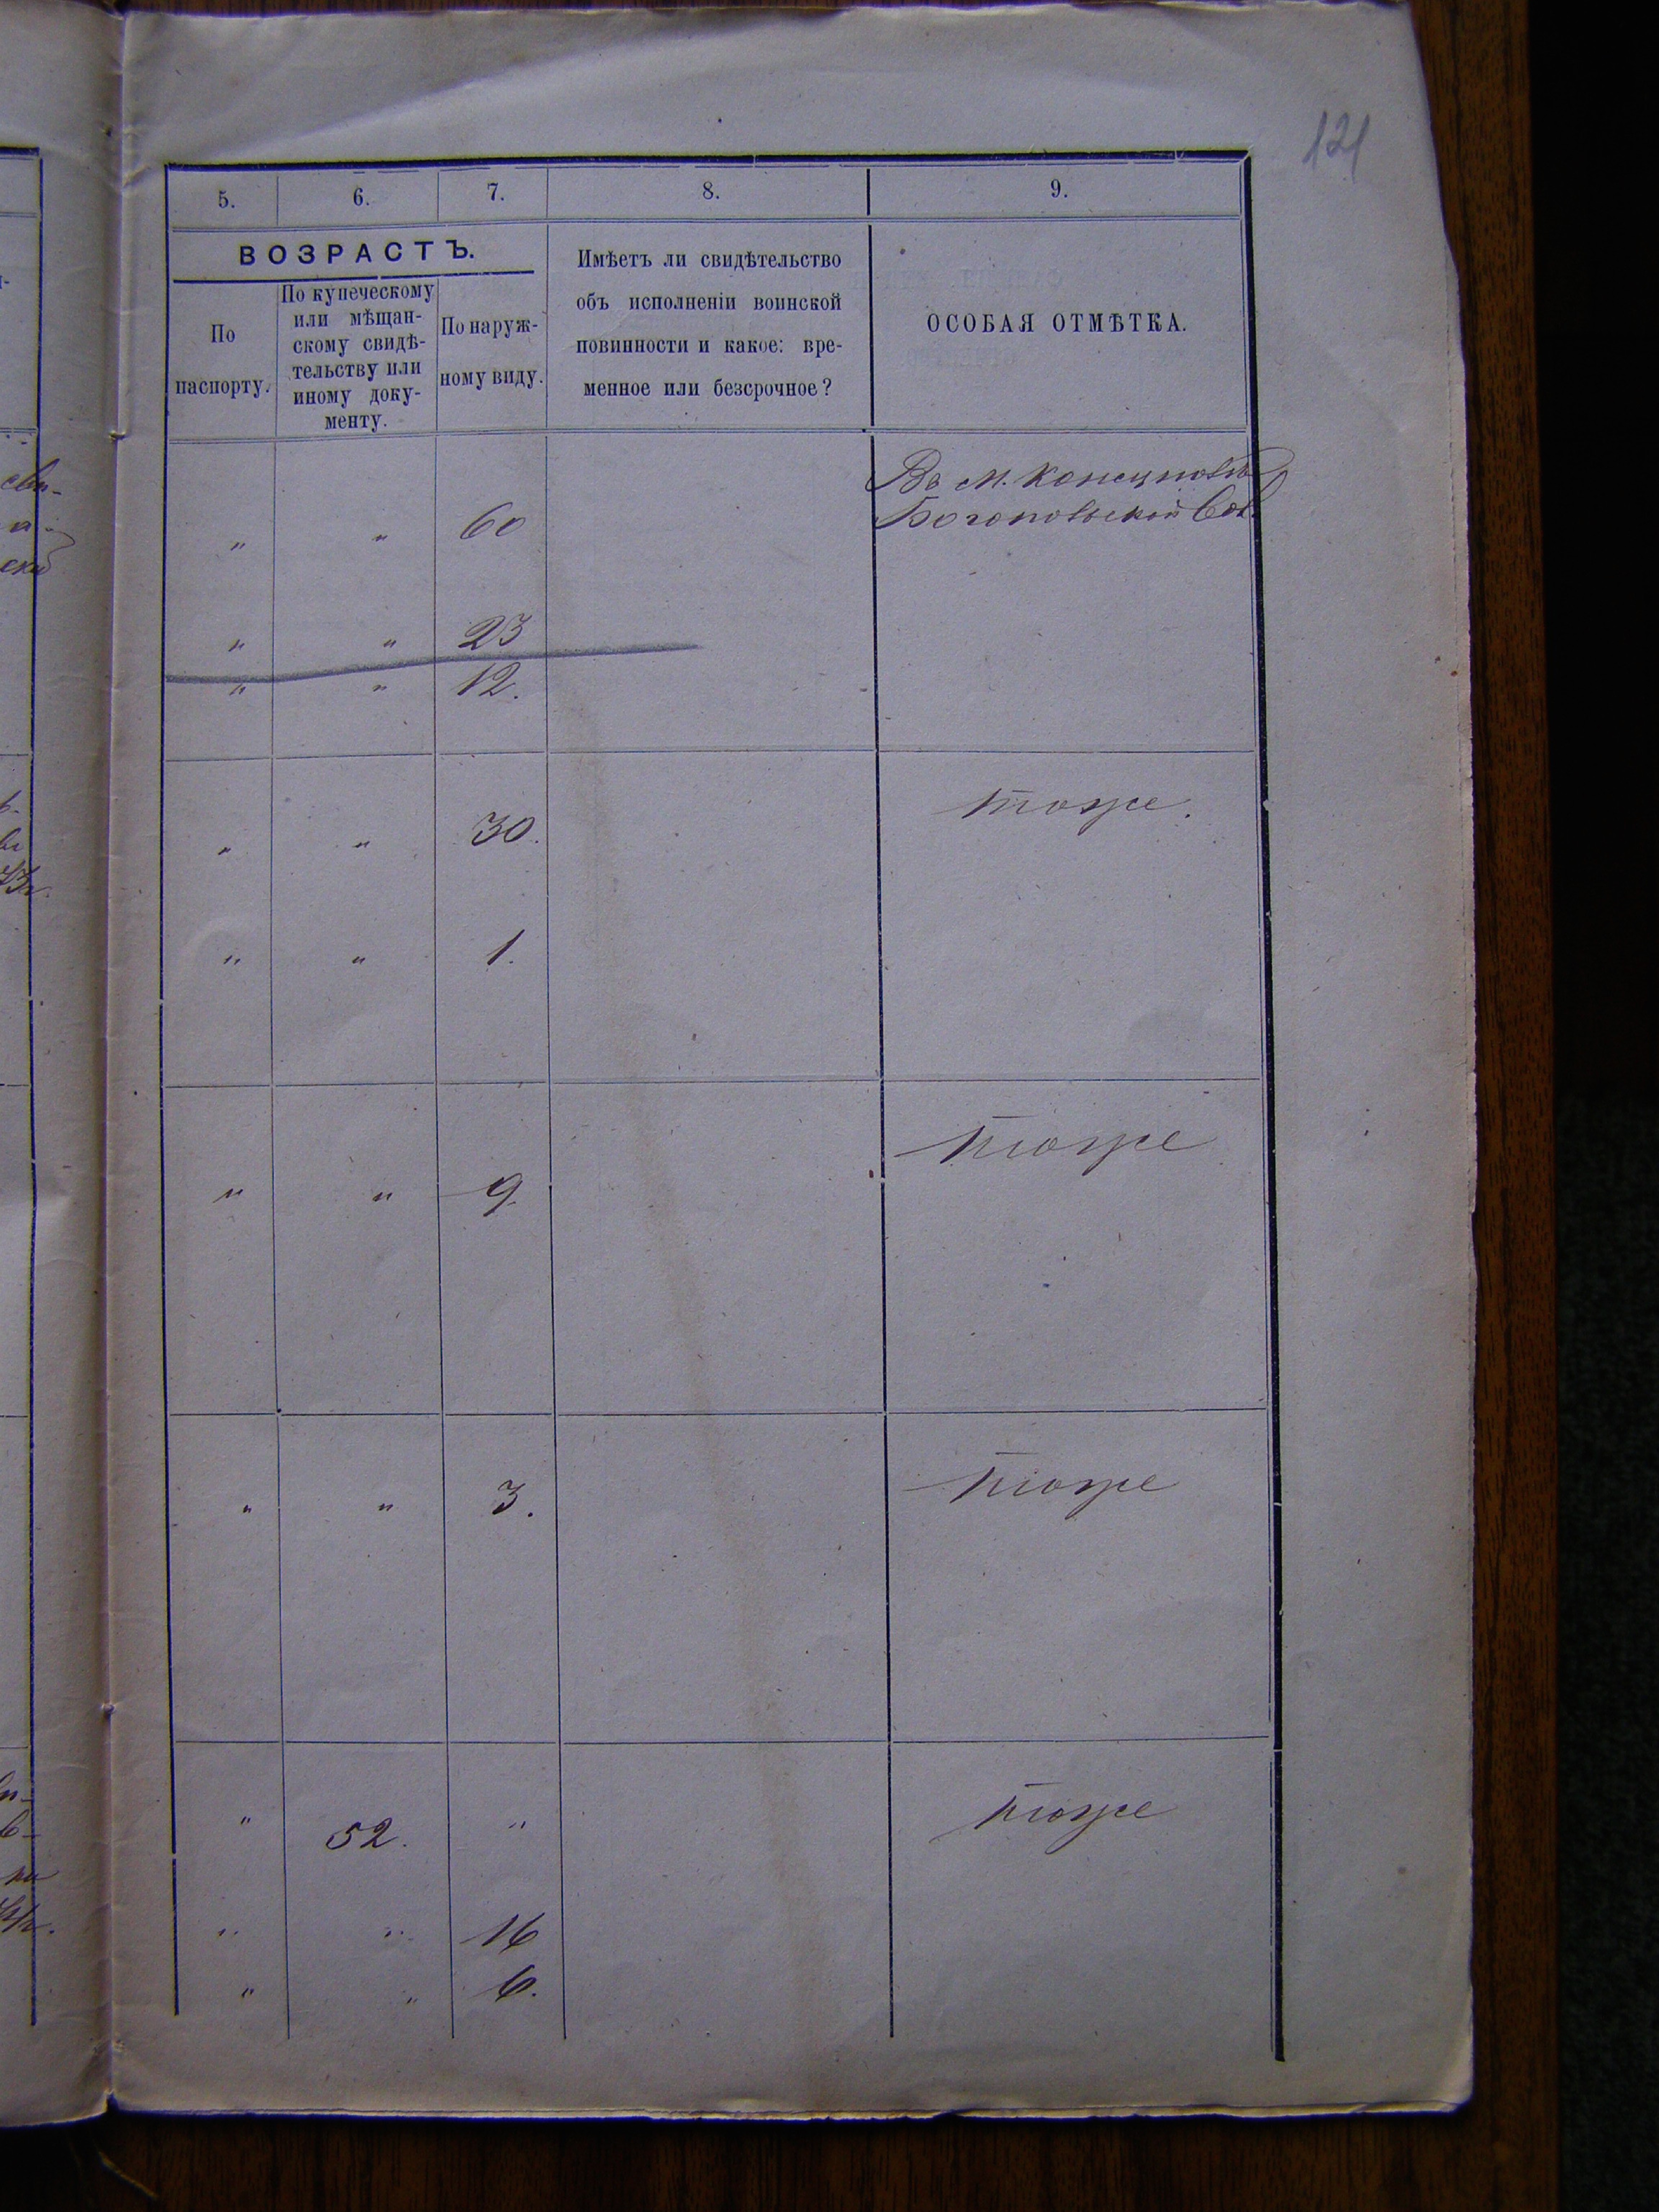 121
5. 6. 7. 8. 9.
ВОЗРАСТЪ.
По
паспорту.
По купеческому
или мѣщан-
скому свидѣ-
тельству или
иному доку-
менту.
По наруж-
ному виду.
Имѣетъ ли свидѣтельство
объ исполненіи воинской
повинности и какое: вре-
менное или безсрочное?
ОСОБАЯ ОТМѢТКА.
Въ м.
" " 60
" " 23
" " 12.
тоже.
" " 30.
" " 1.
тоже
" " 9.
тоже
" " 3.
тоже
" 52. "
" " 16
" " 6.